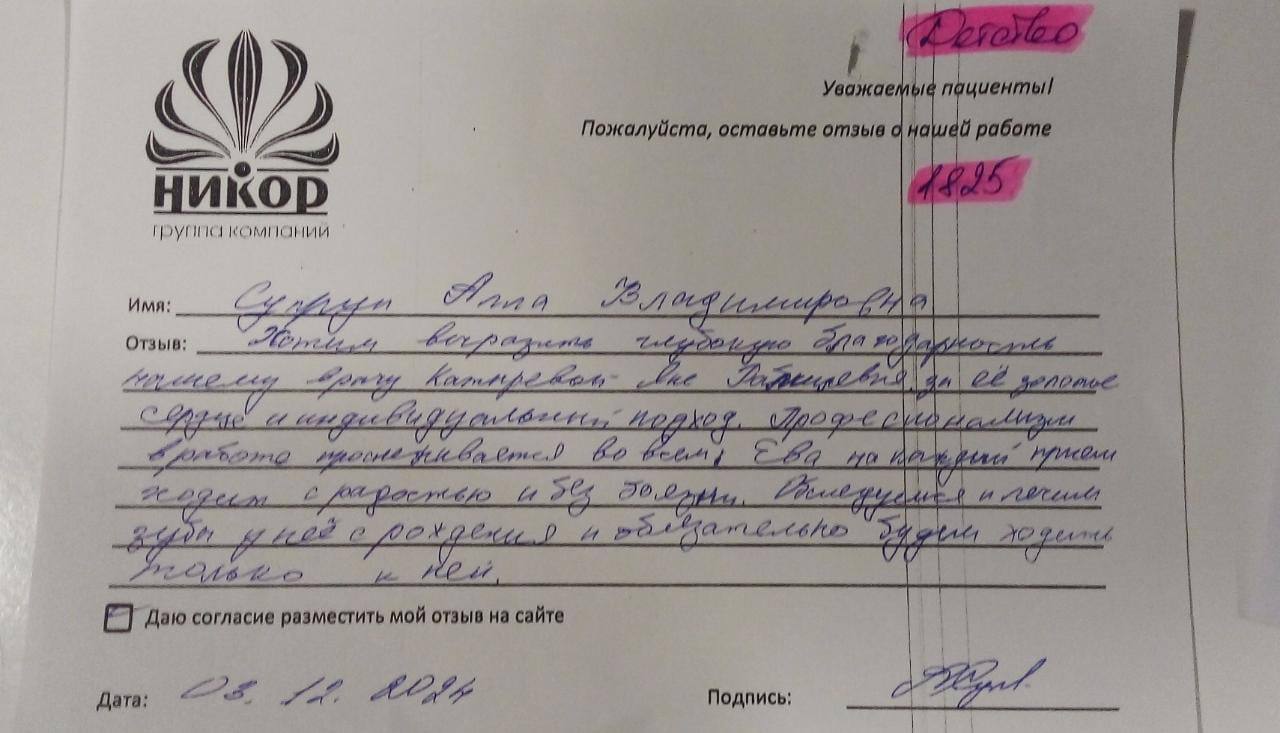 Детство
Уважаемые пациенты!
Пожалуйста, оставьте отзыв о нашей работе
1825
НИКОР
группа компаний
Имя: Супрун Алла Владимировна
Отзыв: Хотим выразить глубокую благодарность
нашему врачу Яне за её золотое
сердце и индивидуальный подход. Профессионализм
в работе прослеживается во всем. Ева на каждый прием
ходит с радостью и без боязни. Обследуемся и лечим
зубы у неё с рождения и обязательно будем ходить
только к ней.
Даю согласие разместить мой отзыв на сайте
Дата: 03.12.2024
Подпись: